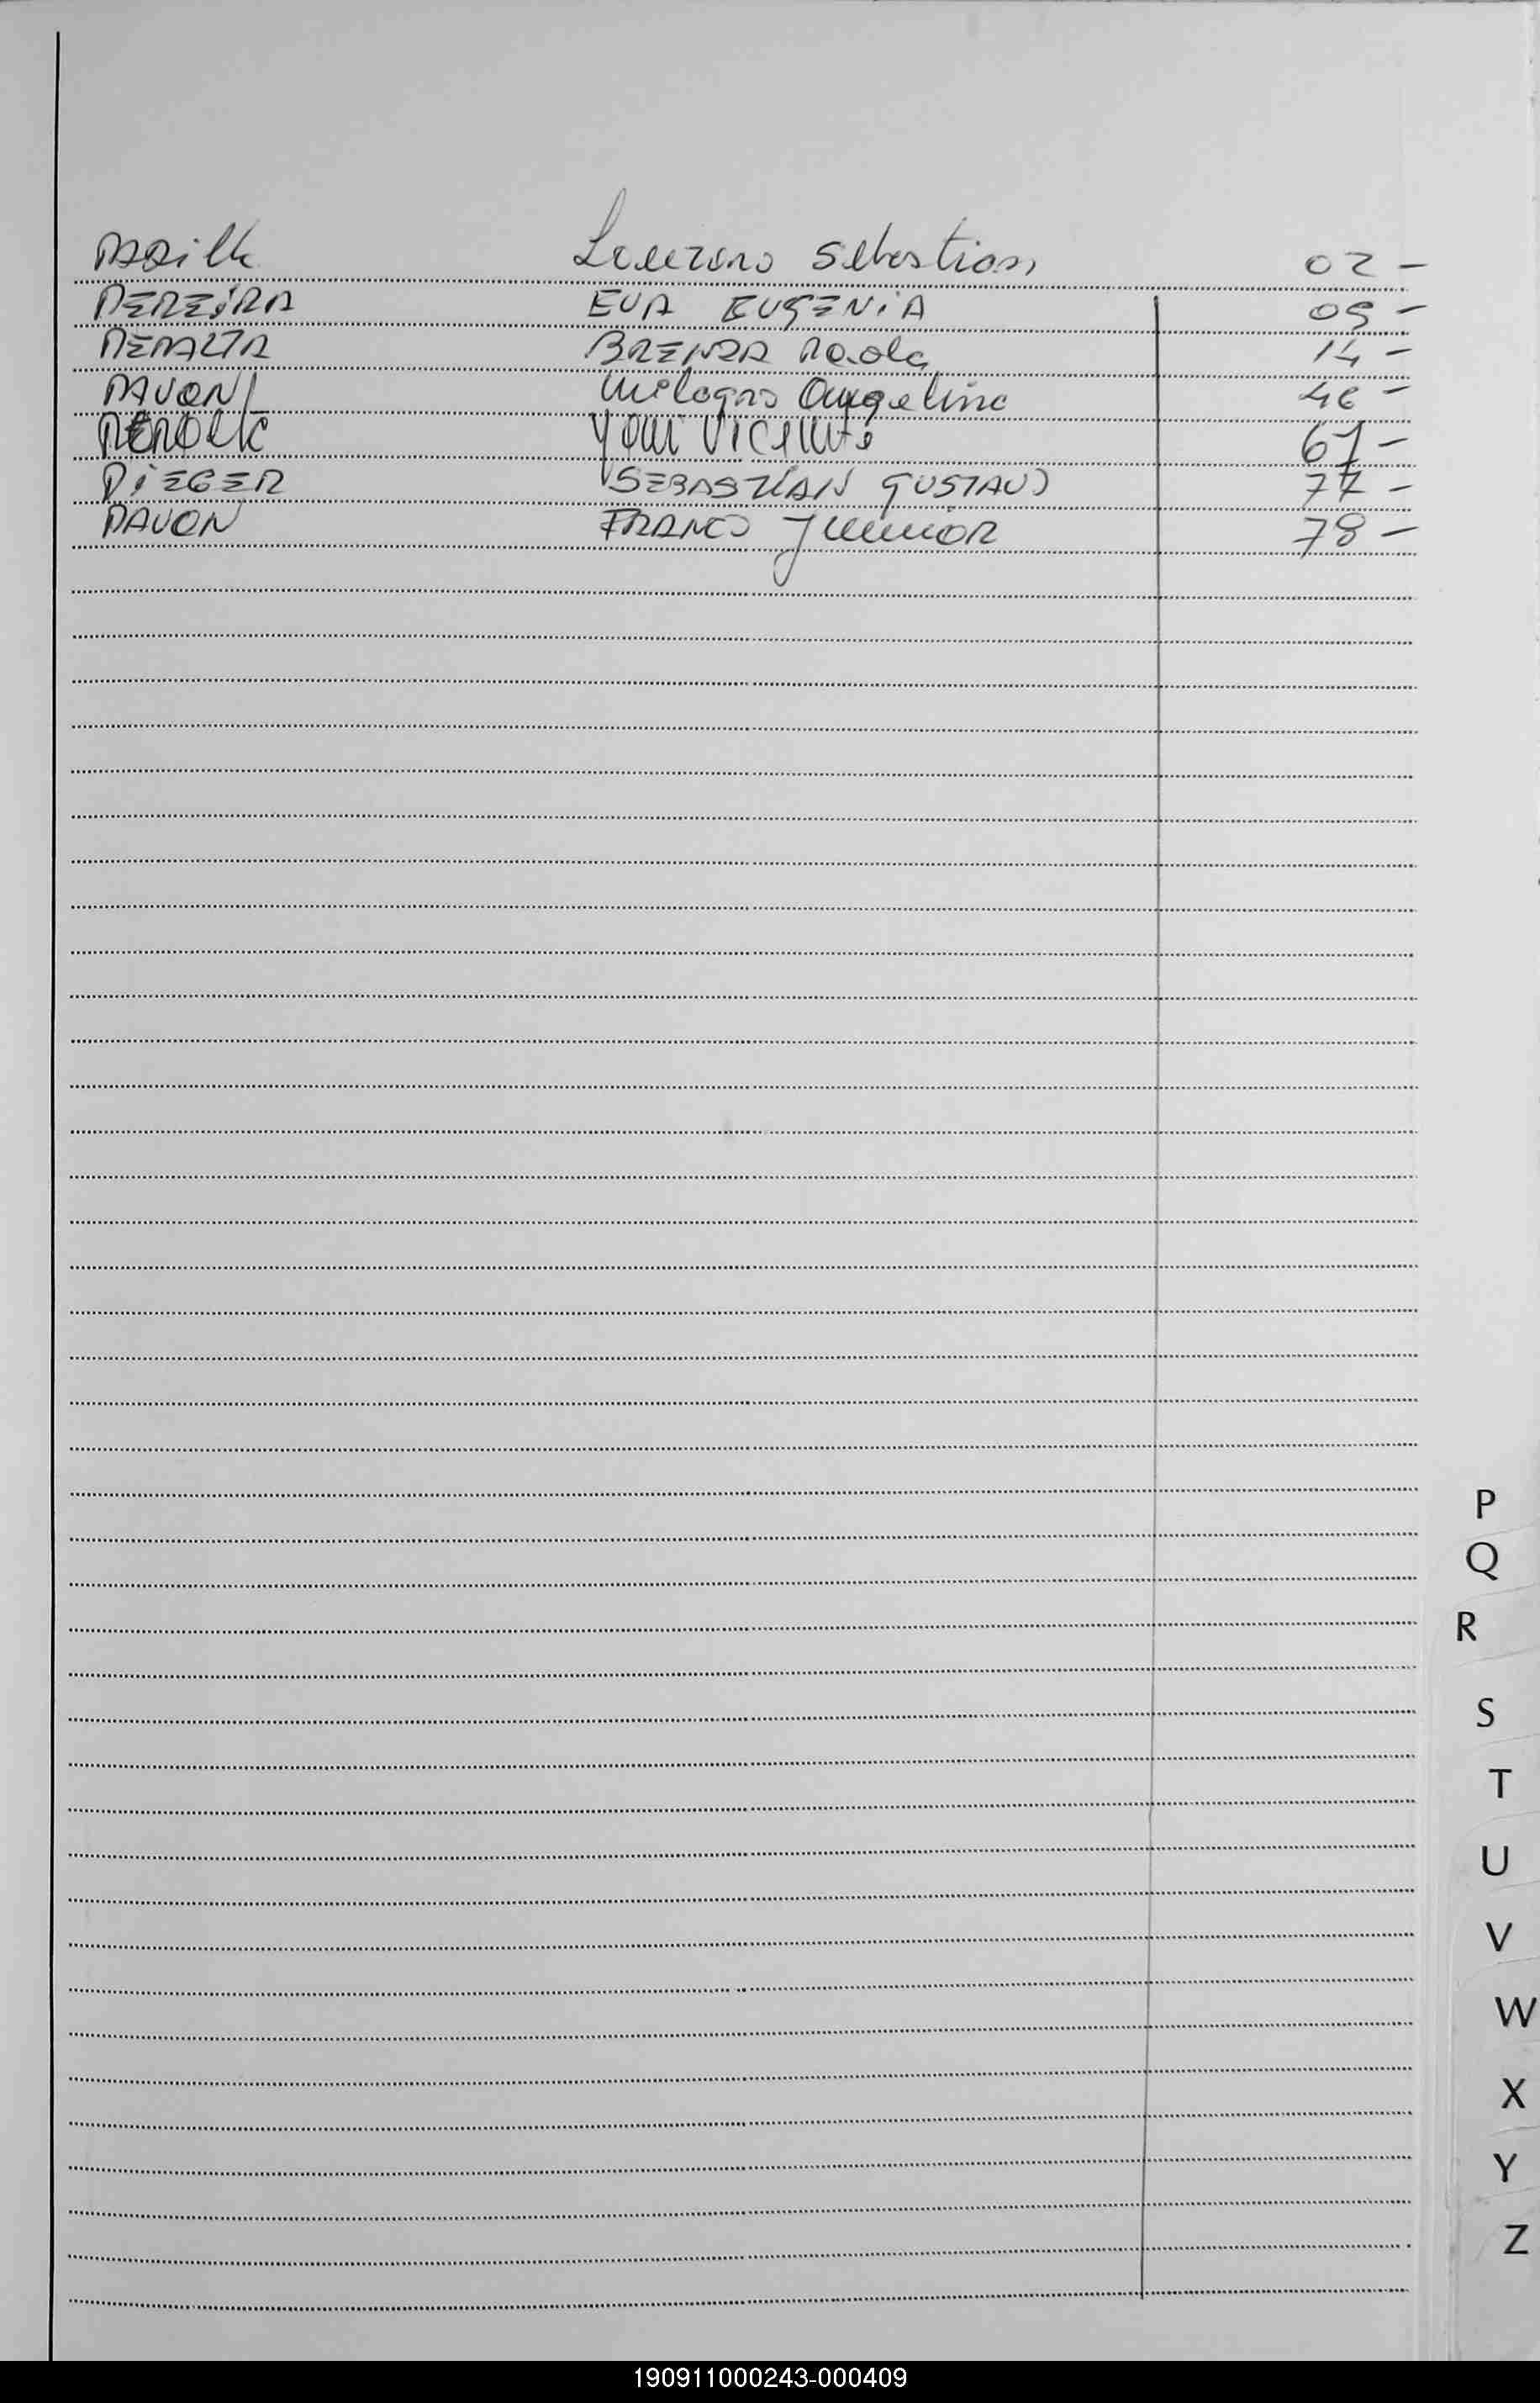 PADilla Lautaro Sebastian 02 -
PEREiRA EVA EUGENiA 09 -
PERALTA BRENDA Paola 14 -
PAVON Milagros Angelina 46 -
Peralta Vicente 67 -
PiEGER SEBASTIAN GUSTAVO 77 -
PAVON FRANCO JUNIOR 78 -
P
Q
R
S
T
U
V
W
X
Y
Z
190911000243-000409